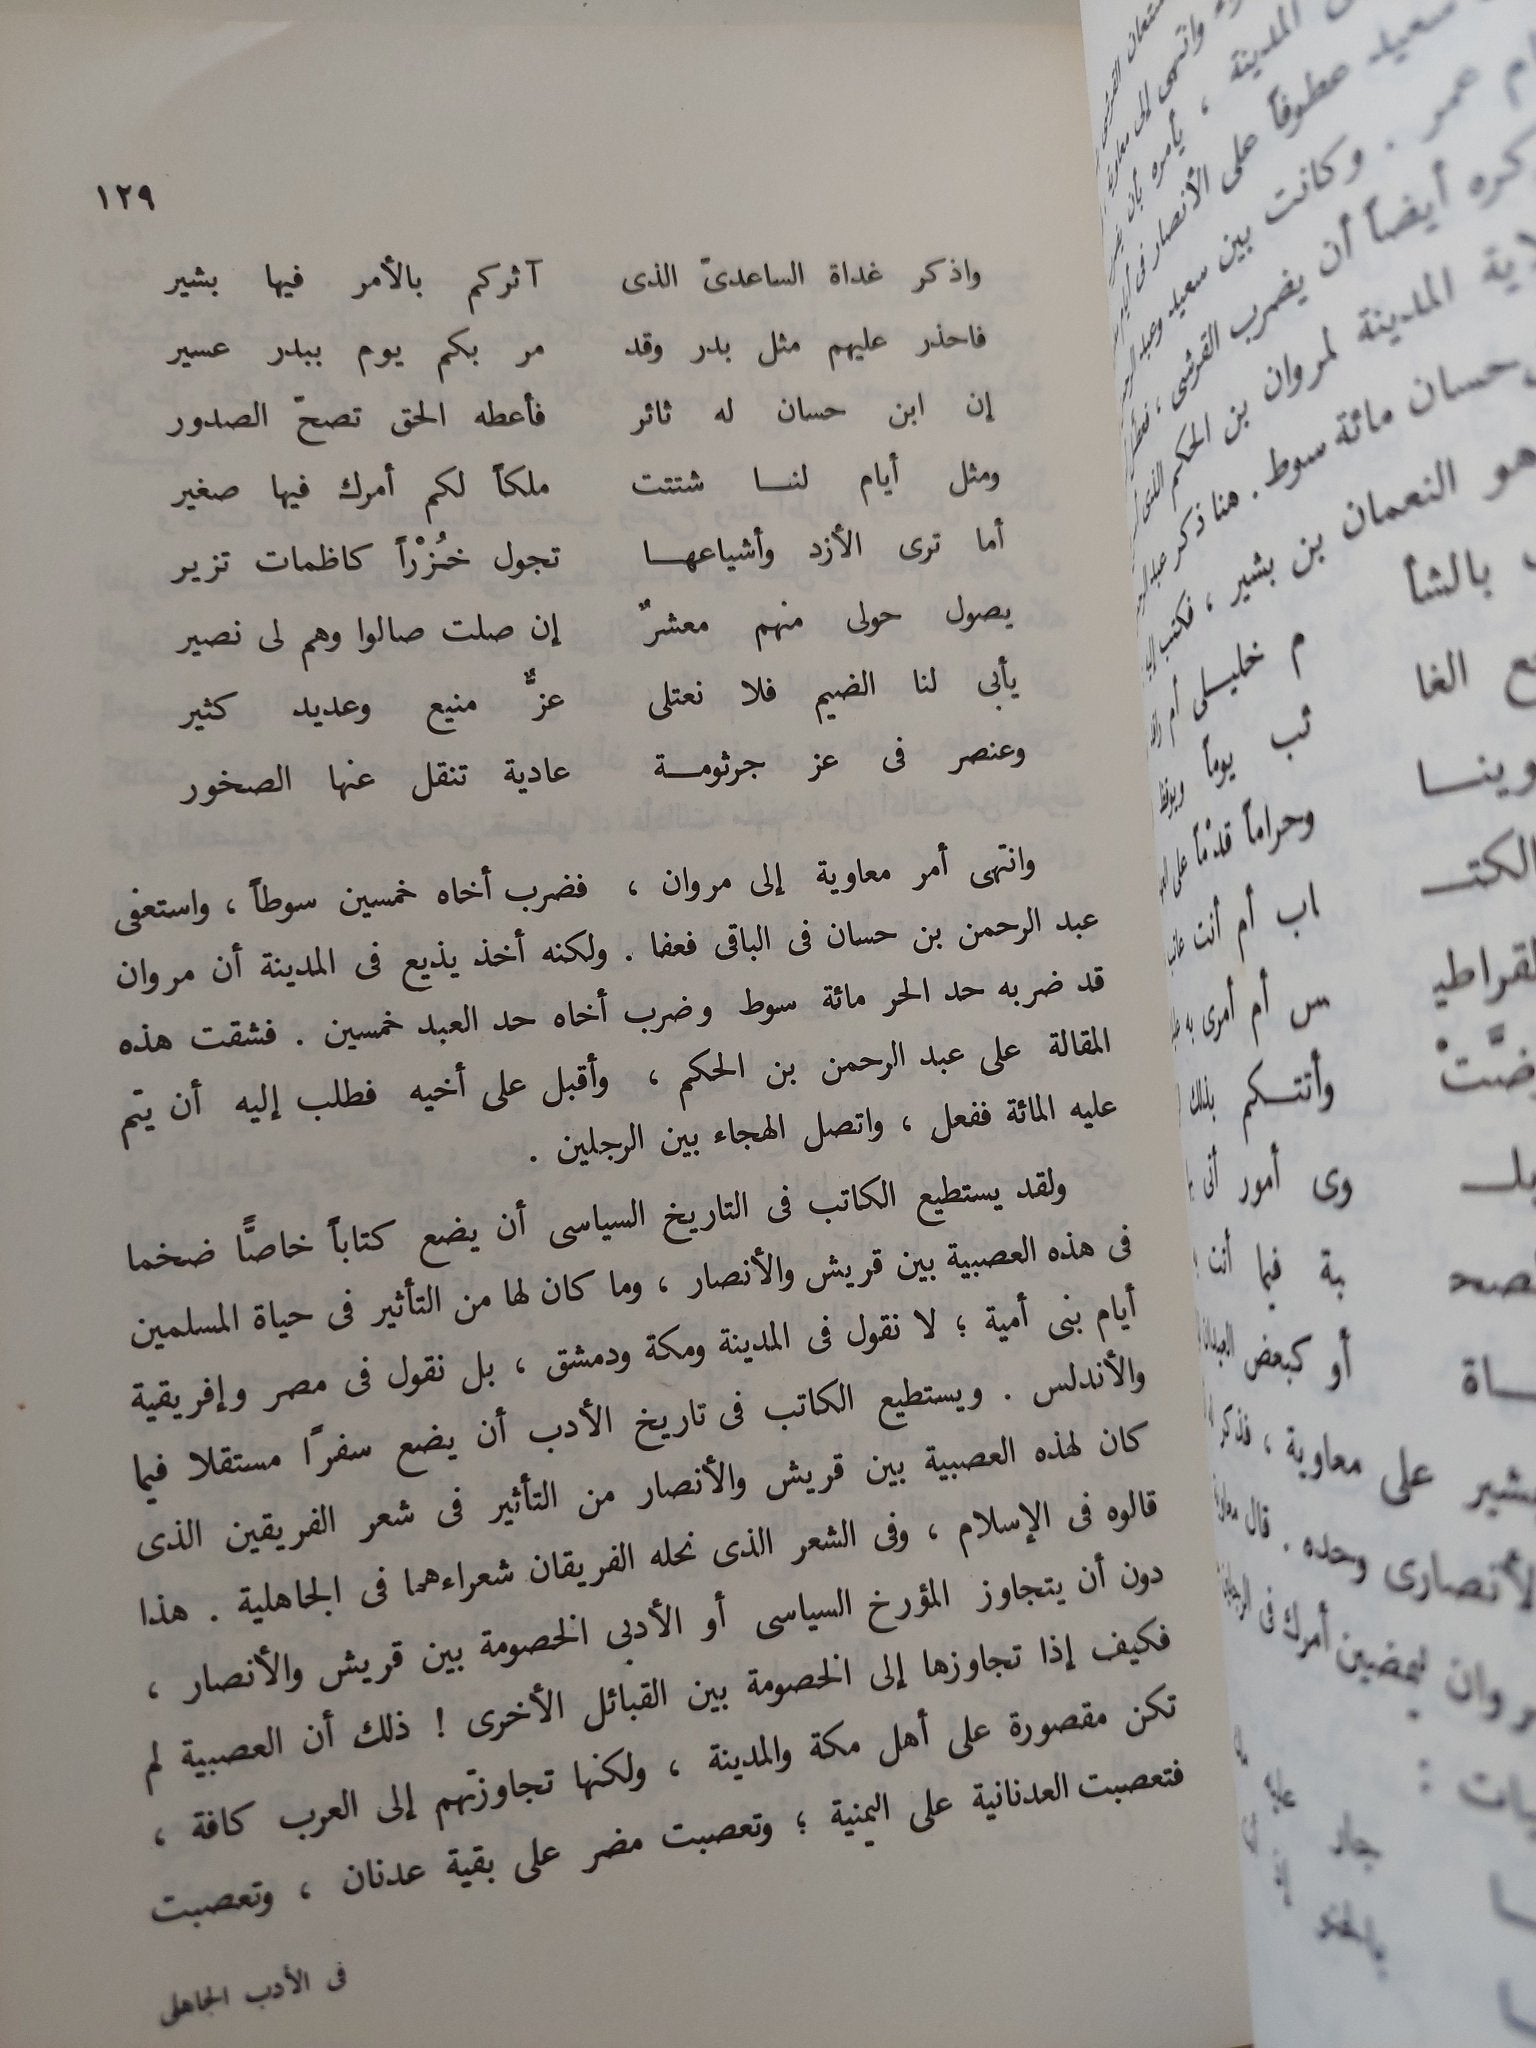 ١٢٩
واذكر غداة الساعدىّ الذى آثركم بالأمر فيها بشير
فاحذر عليهم مثل بدر وقد مر بكم يوم ببدر عسير
إن ابن حسان له ثائر فأعطه الحق تصحّ الصدور
ومثل أيام لنا شتتت ملكاً لكم أمرك فيها صغير
أما ترى الأزد وأشياعها تجول خُزْراً كاظمات تزير
يصول حولى منهم معشرٌ إن صلت صالوا وهم لى نصير
يأبى لنا الضيم فلا نعتلى عزٌّ منيع وعديد كثير
وعنصر فى عز جرثومة عادية تنقل عنها الصخور
وانتهى أمر معاوية إلى مروان ، فضرب أخاه خمسين سوطاً ، واستعفى
عبد الرحمن بن حسان فى الباقى فعفا . ولكنه أخذ يذيع فى المدينة أن مروان
قد ضربه حد الحر مائة سوط وضرب أخاه حد العبد خمسين . فشقت هذه
المقالة على عبد الرحمن بن الحكم ، وأقبل على أخيه فطلب إليه أن يتم
عليه المائة ففعل ، واتصل الهجاء بين الرجلين .
ولقد يستطيع الكاتب فى التاريخ السياسى أن يضع كتاباً خاصًّا ضخما
فى هذه العصبية بين قريش والأنصار ، وما كان لها من التأثير فى حياة المسلمين
أيام بنى أمية ؛ لا نقول فى المدينة ومكة ودمشق ، بل نقول فى مصر وإفريقية
والأندلس . ويستطيع الكاتب فى تاريخ الأدب أن يضع سفرًا مستقلا فيما
كان لهذه العصبية بين قريش والأنصار من التأثير فى شعر الفريقين الذى
قالوه فى الإسلام ، وفى الشعر الذى نحله الفريقان شعراءهما فى الجاهلية . هذا
دون أن يتجاوز المؤرخ السياسى أو الأدبى الخصومة بين قريش والأنصار ،
فكيف إذا تجاوزها إلى الخصومة بين القبائل الأخرى ! ذلك أن العصبية لم
تكن مقصورة على أهل مكة والمدينة ، ولكنها تجاوزتهم إلى العرب كافة ،
فتعصبت العدنانية على اليمنية ؛ وتعصبت مضر على بقية عدنان ، وتعصبت
فى الأدب الجاهلى
المدينة ، يأمره بأن
سعيد عطوفاً على الأنصار فى أيام
عمر . وكانت بين سعيد وعبد
أيضاً أن يضرب القرشى ،
المدينة لمروان بن الحكم الذى
حسان مائة سوط . هنا ذكر
هو النعمان بن بشير ، فكتب
م خليلى أم
يوماً
وحراماً قدْماً على
اب أم أنت
س أم أمرى به
وأتتكم بذلك
وى أمور
بة فيما أنت
أو كبعض
بشير على معاوية ، فذكر
الأنصارى وحده . قال